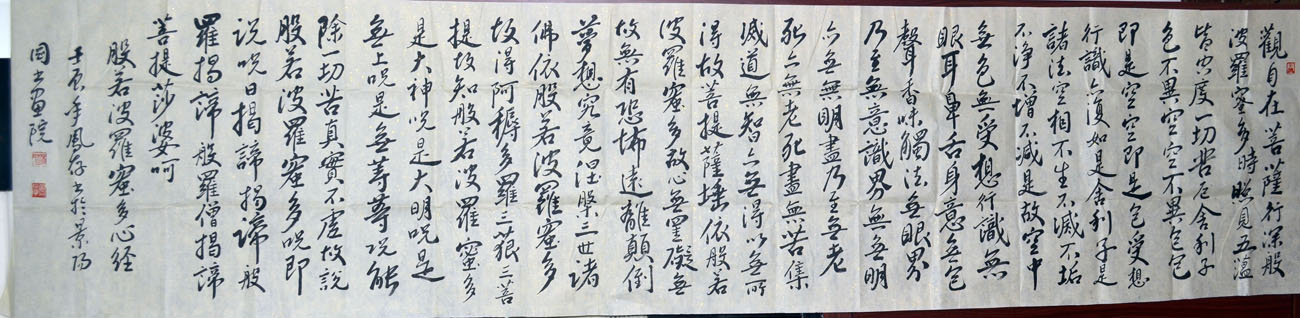 觀自在菩薩行深般
波羅蜜多時照見五蘊
皆空度一切苦厄舍利子
色不異空空不異色色
即是空空即是色受想
行識亦復如是舍利子是
諸法空相不生不滅不垢
不淨不增不減是故空中
無色無受想行識無
眼耳鼻舌身意無色
聲香味觸法無眼界
乃至無意識界無無明
亦無無明盡乃至無老
死亦無老死盡無苦集
滅道無智亦無得以無所
得故菩提薩埵依般若
波羅蜜多故心無罣礙無
故無有恐怖遠離顛倒
夢想究竟涅槃三世諸
佛依般若波羅蜜多
故得阿耨多羅三藐三菩
提故知般若波羅蜜多
是大神咒是大明咒是
無上咒是無等等咒能
除一切苦真實不虛故說
般若波羅蜜多咒即
說咒曰揭諦揭諦般
羅揭諦般羅僧揭諦
菩提莎婆呵
般若波羅蜜多心經
壬辰年鳳存書於景陽
書畫院